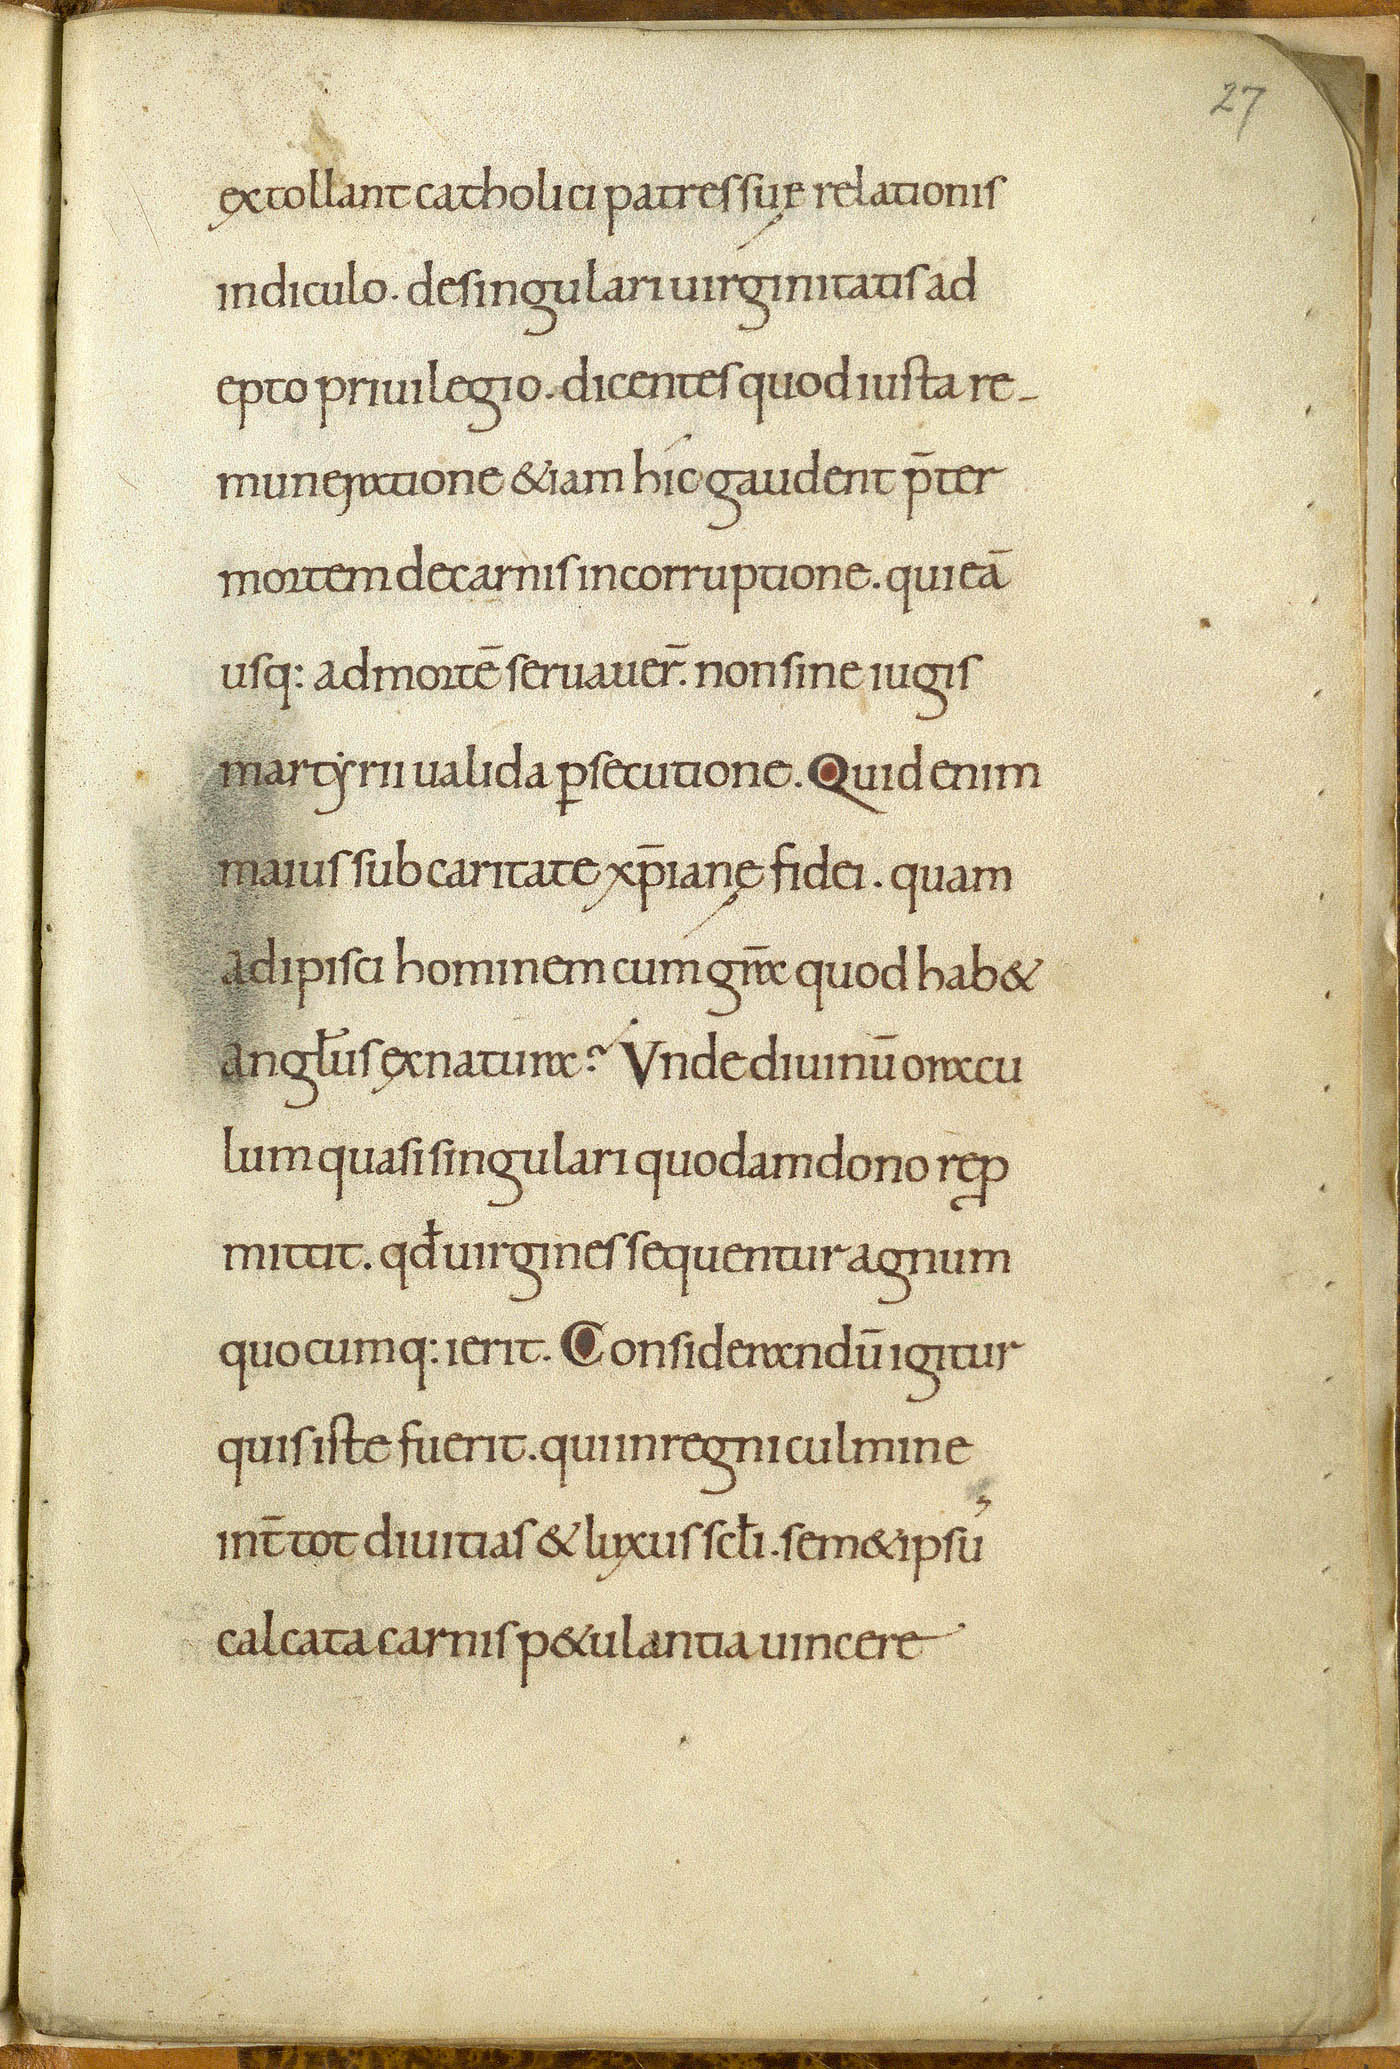 27
extollant catholici patres suę relationis
indiculo. de singulari uirginitatis ad
epto priuilegio. dicentes quod iusta re-
muneratione & iam hic gaudent p̄ter
mortem de carnis incorruptione. qui eā
usq: ad mortē seruauer̄. non sine iugis
martẏrii ualida ꝑsecutione. Quid enim
maius sub caritate xp̄ianę fidei. quam
adipisci hominem cum gr̄a quod hab&
angl̄us ex natura? Vnde diuinū oracu
lum quasi singulari quodam dono reꝓ
mittit. qd̄ uirgines sequentur agnum
quocumq: ierit. Considerandū igitur
quis iste fuerit. qui in regni culmine
int̄ tot diuitias & luxus scl̄i. sem& ipsū
calcata carnis p&ulantia uincere